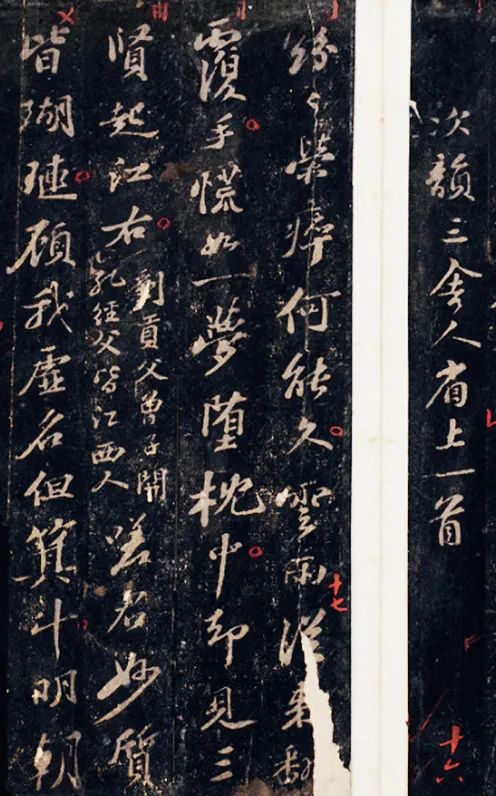 次韻三舍人省上一首
十六
紛々榮瘁何能久雲雨從來翻
十七
覆手慌如一夢墮枕中却見三
賢起江右劉貢父曾子開
孔經父皆江西人嗟君妙質
皆瑚璉顧我虛名但箕斗明朝